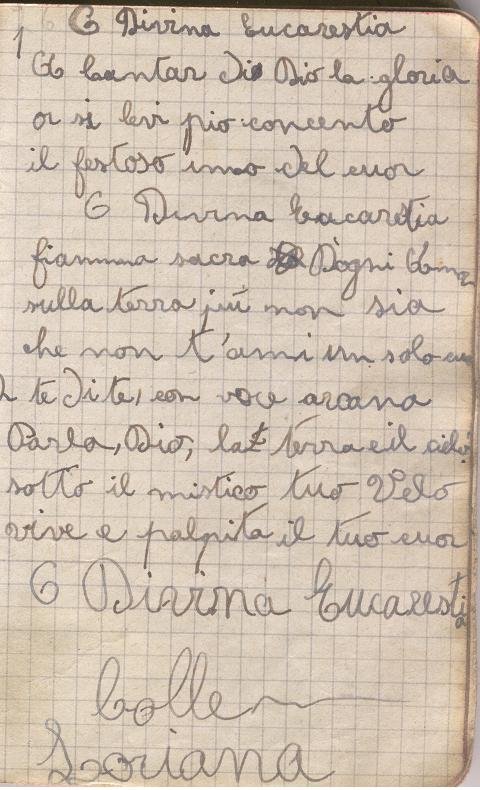 1 O Divina Eucarestia
A Cantar di Dio la gloria
or si levi pio concento
il festoso inno del cuor
O Divina Eucarestia
fiamma sacra D'ogni
sulla terra più non sia
che non t'ami un solo cuor
Di te dite, con voce arcana
Parla, Dio, la terra e il cielo
sotto il mistico tuo Velo
vive e palpita il tuo cuor
O Divina Eucarestia
Colle
Loriana